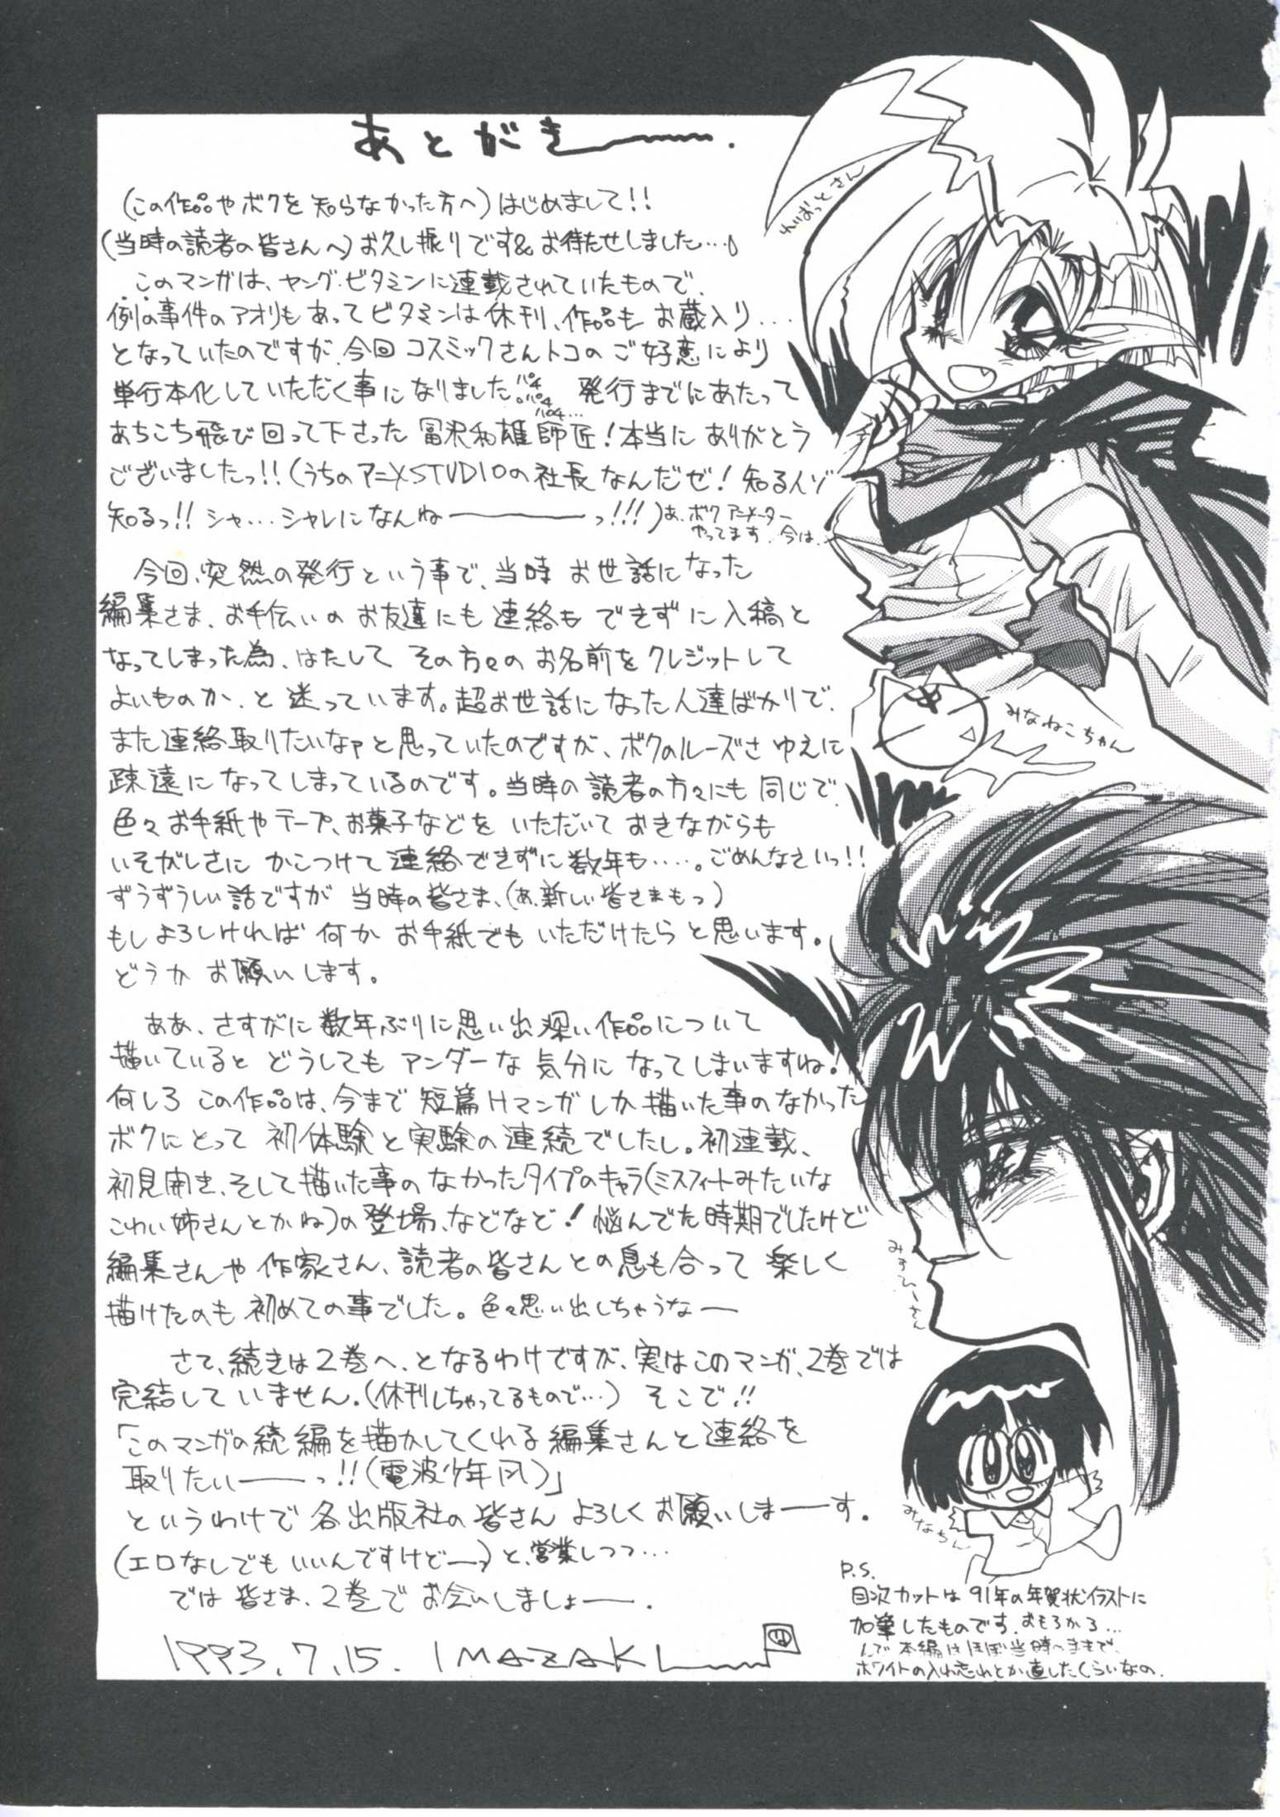 あとがき──.
(この作品やボクを知らなかった方へ)はじめまして!!
(当時の読者の皆さんへ)お久し振りです&お待たせしました…♪
このマンガは、ヤングビタミンに連載されていたもので、
例の事件のアオリもあってビタミンは休刊、作品もお蔵入り…
となっていたのですが、今回コスミックさんトコのご好意により
単行本化していただく事になりました。パチパチパチ… 発行までにあたって
あちこち飛び回って下さった冨沢和雄師匠!本当にありがとう
ございましたっ!!(うちのアニメSTUDIOの社長なんだぜ!知る人ゾ
知るっ!!シャ…シャレになんねーーーっ!!!)あ、ボクアニメーター
やってます、今は、
今回、突然の発行という事で、当時お世話になった
編集さま、お手伝いのお友達にも連絡もできずに入稿と
なってしまった為、はたしてその方々のお名前をクレジットして
よいものか、と迷っています。超お世話になった人達ばかりで、
また連絡取りたいなァと思っていたのですが、ボクのルーズさゆえに
疎遠になってしまっているのです。当時の読者の方々にも同じで、
色々お手紙やテープ、お菓子などをいただいておきながらも
いそがしさにかこつけて連絡できずに数年も……。ごめんなさいっ!!
ずうずうしい話ですが当時の皆さま、(あ、新しい皆さまもっ)
もしよろしければ何かお手紙でもいただけたらと思います。
どうかお願いします。
ああ、さすがに数年ぶりに思い出深い作品について
描いているとどうしてもアンダーな気分になってしまいますね!
何しろこの作品は、今まで短篇Hマンガしか描いた事のなかった
ボクにとって初体験と実験の連続でしたし。初連載、
初見開き、そして描いた事のなかったタイプのキャラ(ミスフィートみたいな
こわい姉さんとかね)の登場、などなど!悩んでた時期でしたけど
編集さんや作家さん、読者の皆さんとの息も合って楽しく
描けたのも初めての事でした。色々思い出しちゃうなー
さて、続きは2巻へ、となるわけですが、実はこのマンガ、2巻では
完結していません。(休刊しちゃってるもので…)そこで!!
「このマンガの続編を描かしてくれる編集さんと連絡を
取りたいーーっ!!(電波少年風)」
というわけで各出版社の皆さんよろしくお願いしまーーす。
(エロなしでもいいんですけどーっ)と、営業しつつ…
では皆さま、2巻でお会いしましょー.
1993.7.15. IMAZAKI
がばっとさん
みなねこちゃん
みろくーさん
みなちん
P.S.
目次カットは91年の年賀状イラストに
加筆したものです。おもろかろ…
んで本編はほぼ当時のままで、
ホワイトの入れ忘れとか直したくらいなの.